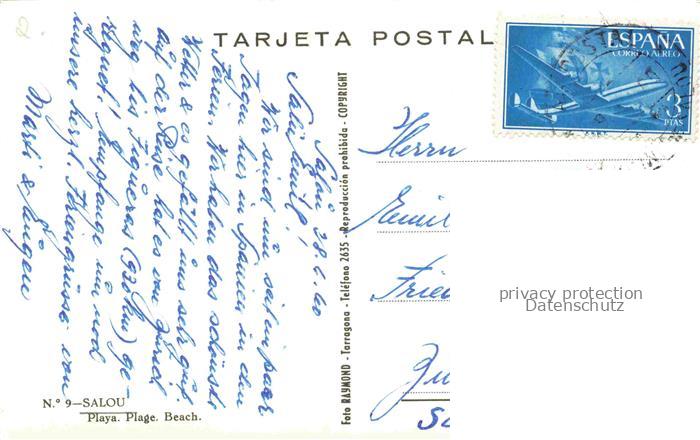 TARJETA POSTAL
ESPAÑA
CORREO AEREO
3
PTAS
Salou 28.6.60
Salü Emil!,
Wir sind nun seit ein paar
Tagen hier in Spanien in den
Ferien. Wir haben das schönste
Wetter & es gefällt uns sehr gut.
Auf der Reise hat es von Zürich
weg bis Figueras (970 km) ge-
regnet! Empfange nun noch
unsere herzl. Feriengrüsse von
Marti & Eugen
Herrn
Emil
Frie
Zu
privacy protection
Datenschutz
Foto RAYMOND - Tarragona - Teléfono 2635 - Reproducción prohibida - COPYRIGHT
N.º 9—SALOU
Playa. Plage. Beach.